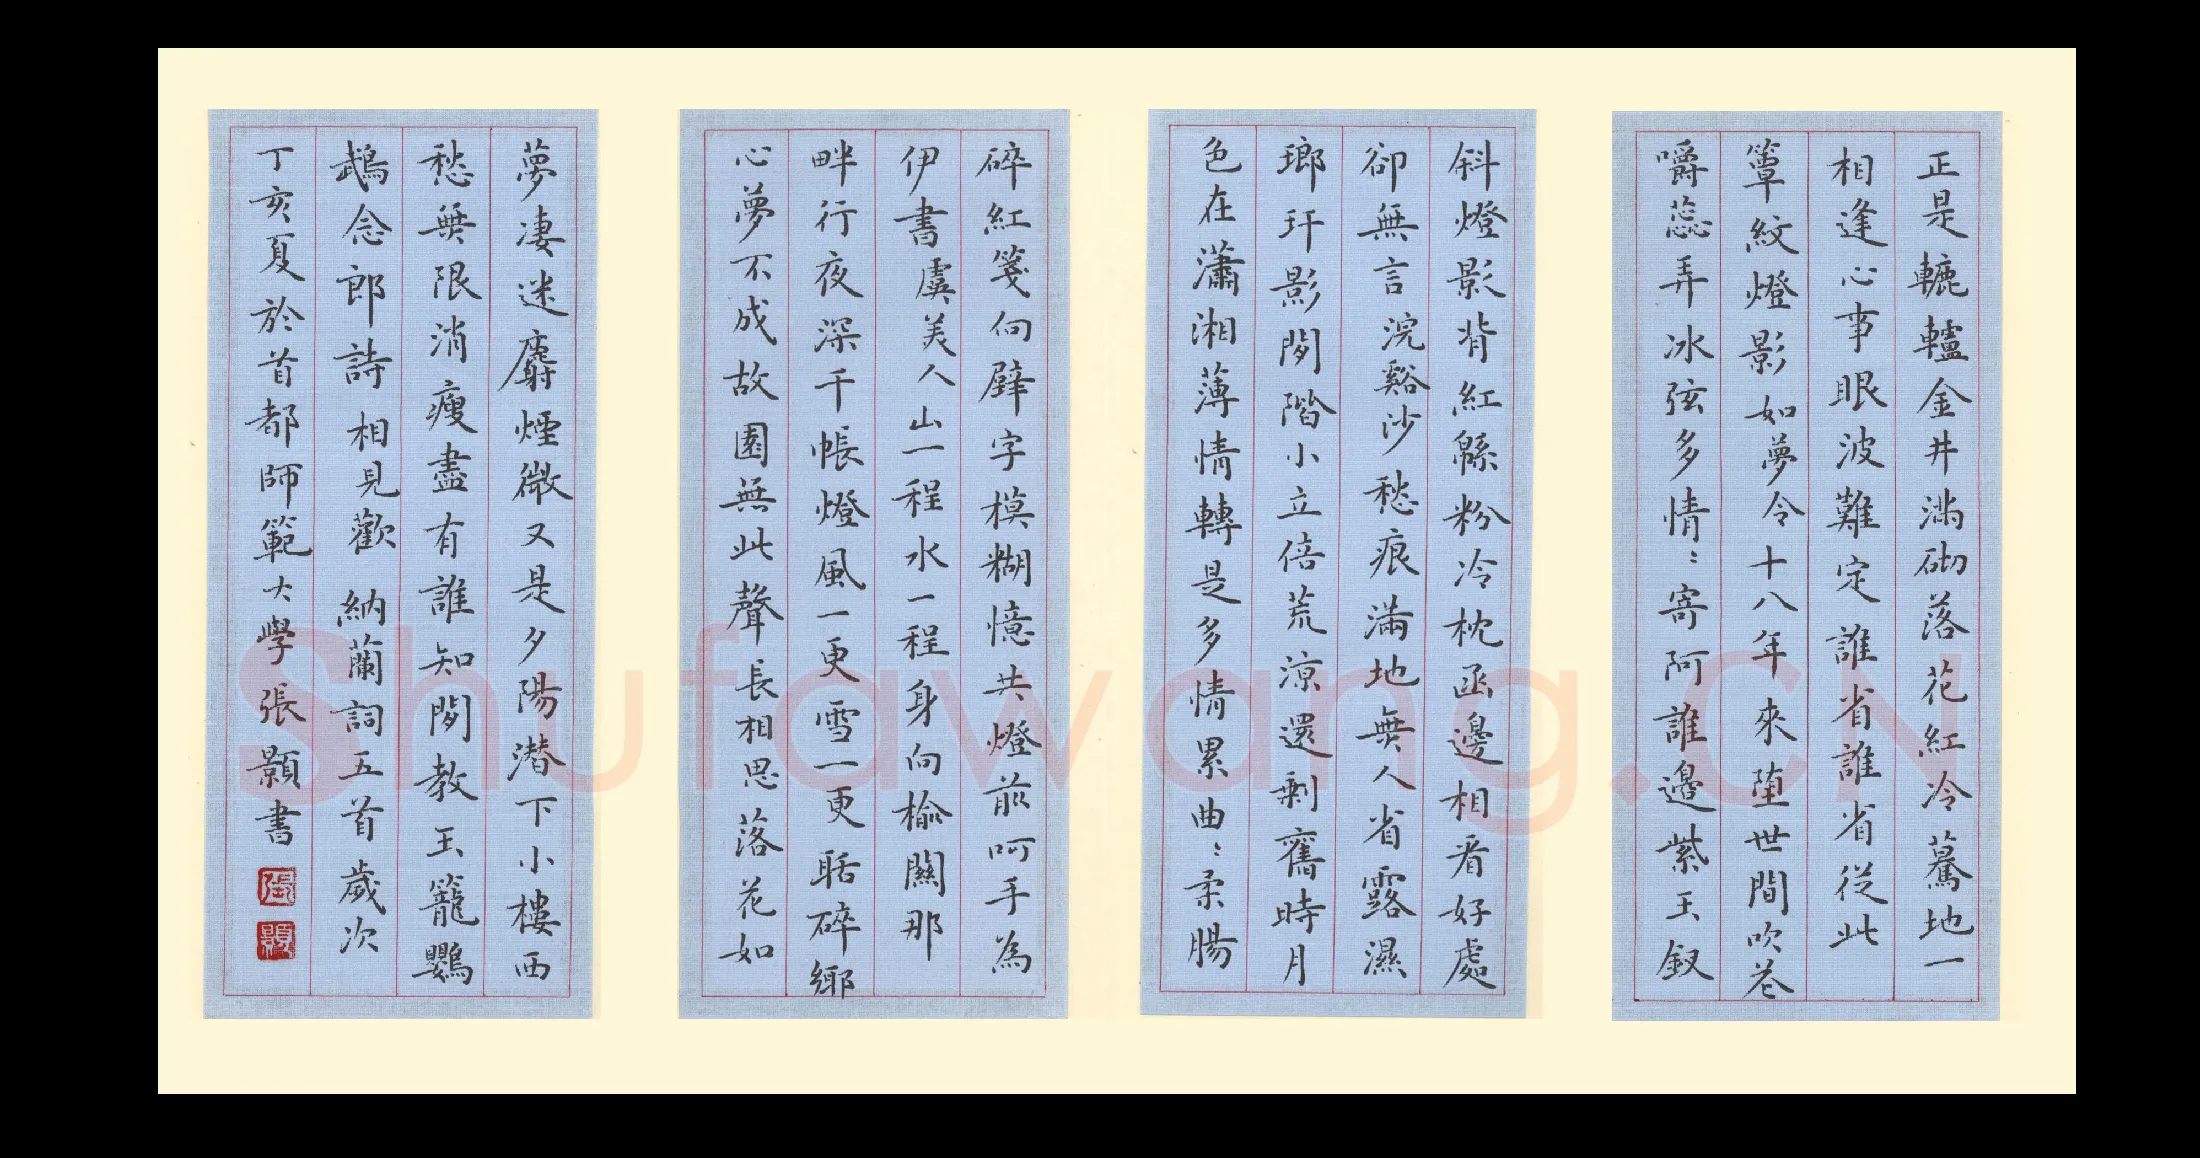 正是轆轤金井滿砌落花紅冷驀地一
相逢心事眼波難定誰省誰省從此
簟紋燈影如夢令十八年來墮世間吹花
嚼蕊弄冰弦多情〻寄阿誰邊紫玉釵
斜燈影背紅綿粉冷枕函邊相看好處
卻無言浣谿沙愁痕滿地無人省露濕
瑯玕影閒階小立倍荒涼還剩舊時月
色在瀟湘薄情轉是多情累曲〻柔腸
碎紅箋向壁字模糊憶共燈前呵手為
伊書虞美人山一程水一程身向榆關那
畔行夜深千帳燈風一更雪一更聒碎鄉
心夢不成故園無此聲長相思落花如
夢凄迷麝煙微又是夕陽潛下小樓西
愁無限消瘦盡有誰知閒教玉籠鸚
鵡念郎詩相見歡 納蘭詞五首歲次
丁亥夏於首都師範大學張顥書
Shufawang.CN